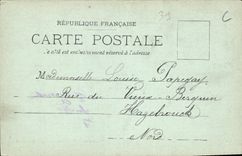 39
C
RÉPUBLIQUE FRANÇAISE
CARTE POSTALE
Ce côté est exclusivement réservé à l'adresse
Mademoiselle Louise Papegay
Rue du Vieux Berquin
Hazebrouck
Nord